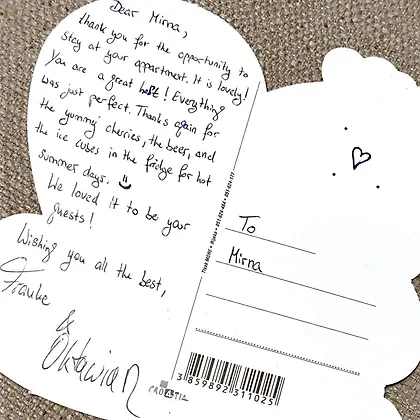 Dear Mirna,
thank you for the opportunity to
stay at your appartment. It is lovely!
You are a great host! Everything
was just perfect. Thanks again for
the yummy cherries, the beer, and
the ice cubes in the fridge for hot
summer days.
We loved it to be your
guests!
Wishing you all the best,
Frauke
&
Oktawian
To
Mirna
Think MORE • Rijeka • 051-624-464 • 051-624-177
3 859892 311025
CROATIA